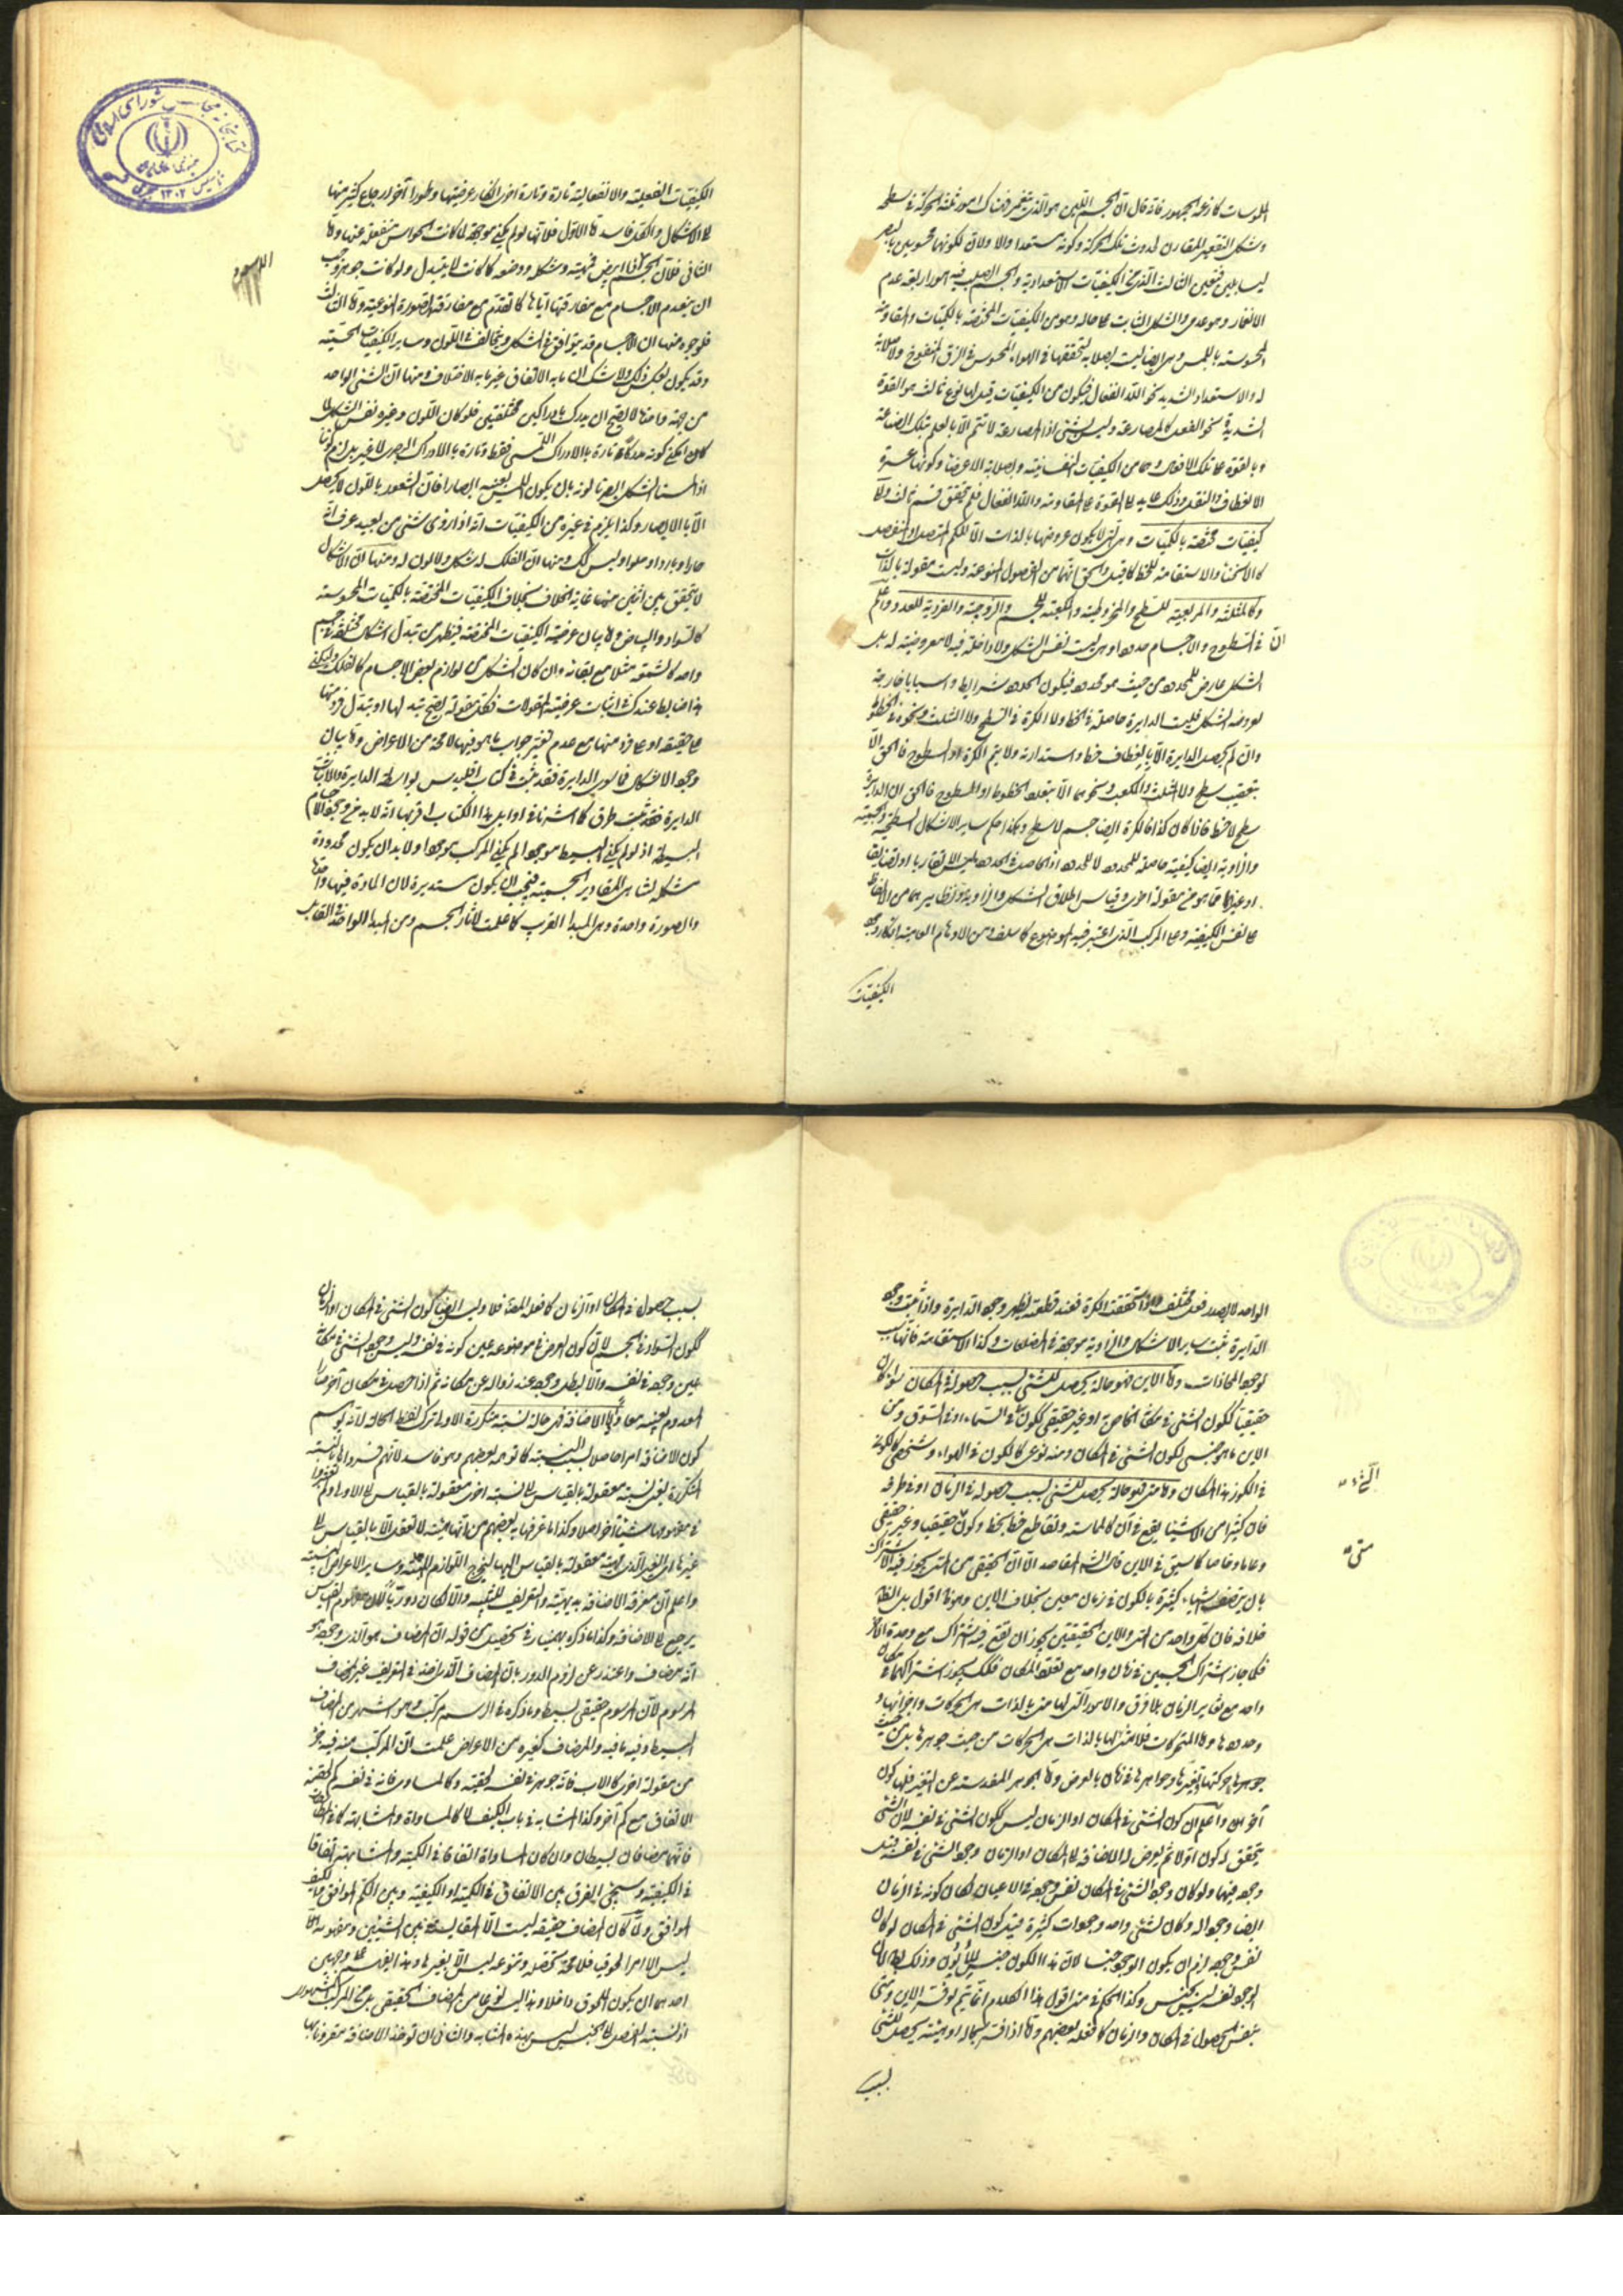 الملموسات كما زعمه الجمهور فانه قال ان الجسم اللين هو الذي ينغمر فهناك امور ثلثة الحركة في سطحه
وشكل التقعير المقارن لحدوث تلك الحركة وكونه مستعدا والاولان لكونهما محسوسين بالبصر
ليسا بلين فتعين الثالث الذي من الكيفيات الاستعدادية والجسم الصلب فيه امور اربعة عدم
الانغمار وهو عدمي والشكل الثابت على حاله وهو من الكيفيات المختصة بالكميات والمقاومة
المحسوسة باللمس وهي ايضا ليست بصلابة لتحققها في الهواء المحسوس في الزق المنفوخ ولا صلابة
له والاستعداد الشديد نحو اللاانفعال فيكون من الكيفيات قيل لها نوع ثالث هو القوة
الشديدة نحو الفعل كالمصارعة وليس بشيء اذ المصارعة لا تتم الا بالعلم بتلك الصناعة
وبالقوة على تلك الافعال وهما من الكيفيات النفسانية وبصلابة الاعضاء وكونها عسرة
الانعطاف والنقل وذلك عايد الى القوة على المقاومة واللاانفعال فلم يتحقق قسم ثالث ولا
كيفيات مختصة بالكميات وهي التي لا يكون عروضها بالذات الا للكم المتصل او المنفصل
كالانحناء والاستقامة للخط كما قيل والحق انهما من الفصول المنوعة وليست مقولة بالذات
وكالمثلثية والمربعية للسطح والمخروطية والمكعبية للجسم والزوجية والفردية للعدد واعلم
ان في السطوح والاجسام حدودا وهي ليست نفس الشكل ولا داخلة فيه لا معروضية له بل
الشكل عارض للمحدود من حيث هو محدود فيكون الحدود شرايط واسبابا خارجة
لعروض الشكل فليست الدايرة حاصلة في الخط ولا الكرة في السطح ولا المثلث ونحوه في الخطوط
وان لم يحصل الدايرة الا بانعطاف خط واستدارته ولا يتم الكرة او السطوح فالحق الا
بتحقيب سطح ولا المثلث والمكعب ونحوهما الا بتعلق الخطوط او السطوح فالحق ان الدايرة
سطح لا خط فاذا كان كذا فالكرة ايضا جسم لا سطح وهكذا حكم ساير الاشكال السطحية والجسمية
والزاوية ايضا كيفية حاصلة للمحدود لا للحدود اذ الحاصل في الحدود ليس الا تقاربا او تضايقا
او غيرهما مما هو من مقولة اخرى وقياس اطلاق الشكل والزاوية ونظايرهما من الالفاظ
على نفس الكيفية وعلى المركب الذي اعتبر فيه الموضوع كما سلف ومن الاوهام العامية انكار وجود
الكيفيات
الكيفيات الفعلية والانفعالية تارة وتارة اخرى انكار عرضيتها وطورا آخر ارجاع كثير منها
الى الاشكال والكل فاسد اما الاول فلانها لو لم يكن موجودة لما كانت الحواس منفعلة عنها واما
الثاني فلان الجسم اذا ابيض فمهيته وشكله ووضعه كما كانت لا يتبدل ولو كانت جوهرا وجب
ان ينعدم الاجسام مع مفارقتها اياها كما تقدم مع مفارقة الصورة النوعية واما الثالث
فلوجوه منها ان الاجسام قد يتوافق في الشكل ويتخالف في اللون وساير الكيفيات الحسية
وقد يكون بعكس ذلك ولا شك ان ما به الاتفاق غير ما به الاختلاف ومنها ان الشيء الواحد
من جهة واحدة لا يصح ان يدرك بادراكين مختلفتين فلو كان اللون وغيره نفس الشكل
كان يمكن كونه مدركا تارة بالادراك اللمسي فقط وتارة بالادراك البصري لا غير بل لزم كوننا
اذا لمسنا الشكل ابصرنا لونه بان يكون اللمس بعينه ابصارا فان الشعور باللون لا يحصل
الا بالابصار وكذا يلزم في غيره من الكيفيات انه اذا رؤى شيء من بعيد عرف انه
حار او بارد او حلو او ليس كك ومنها ان الفلك له شكل ولا لون له ومنها ان الاشكال
لا يتحقق بين اثنين منها غاية الخلاف بخلاف الكيفيات المختصة بالكميات المحسوسة
كالسواد والبياض واما بيان عرضية الكيفيات المختصة فيظهر من تبدل اشكال مختلفة في جسم
واحد كالشمعة مثلا مع بقائه وان كان الشكل من لوازم بعض الاجسام كالفلك وليكن
هذا ضابطا عندك في اثبات عرضية المقولات فكل مقولة يصح تبدلها او تبدل فرد منها
على حقيقة او على فرد منها مع عدم تغير جواب ما هو فيها لا محة من الاعراض واما بيان
وجود الاشكال فما سوى الدايرة فقد ثبت في كتاب اقليدس بواسطة الدايرة واما اثبات
الدايرة فقد ثبت بطرق كما اشرنا في اوايل هذا الكتاب اقربها انه لا بد من وجود الاجسام
البسيطة اذ لو لم يكن البسيط موجودا لم يكن المركب موجودا ولا بد ان يكون محدودة
مشكلة لتناهي المقادير الجسمية فيجب ان يكون مستديرة لان المادة فيها واحدة
والصورة واحدة وهي المبدأ القريب كما علمت لآثار الجسم ومن المبدأ الواحد في القابل
الواحد لا يصدر فعل مختلف واذا تحققت الكرة فعند قطعه يظهر وجود الدايرة واذا ثبت وجود
الدايرة ثبت ساير الاشكال والزاوية موجودة في المضلعات وكذا الاستقامة فانها سبب
لوجود المحاذات واما الاين فهو حالة يحصل للشيء بسبب حصوله في المكان سواء كان
حقيقيا ككون الشيء في مكانه الخاص به او غير حقيقي ككونه في السماء او في السوق ومن
الاين ما هو جنسي لكون الشيء في المكان ومنه نوعي كالكون في الهواء وشخصي ككونه
في الكوز هذا المكان واما متى فهو حالة يحصل للشيء بسبب حصوله في الزمان او في طرفه
فان كثيرا من الاشياء يقع في آن كالمماسة وتقاطع خط بخط وكونه حقيقيا وغير حقيقي
وعاما وخاصا كما سبق في الاين قال المقاصد الا ان الحقيقي من المتى يجوز فيه الاشتراك
بان يتصف اشياء كثيرة بالكون في زمان معين بخلاف الاين وهو اقول بل الظ
خلافه فان كل واحد من المتى والاين الحقيقيين يجوز ان يقع فيه اشتراك مع وحدة الآخر
فكما جاز اشتراك الجسمين في زمان واحد مع تعدد المكان فكك يجوز اشتراكهما في مكان
واحد مع تغاير الزمان بلا فرق والامور التي لها متى بالذات هي الحركات واجزائها و
حدودها واما المتحركات فلا متى لها بالذات من حيث جوهرها بل من حيث
جوهرها وحركتها وتغيرها وجواهرها في زمان بالعرض واما الجوهر المقدسة عن التغير فلها كون
آخر واعلم ان كون الشيء في المكان او الزمان ليس ككون الشيء في نفسه لان الشيء
يتحقق له كون اولا ثم يعرض له الاضافة الى المكان او الزمان وجود الشيء في نفسه قبل
وجوده فيهما ولو كان وجود الشيء في المكان نفس وجوده في الاعيان لكان كونه في الزمان
ايضا وجودا له وكان لشيء واحد وجودات كثيرة قيل كون الشيء في المكان لو كان
نفس وجوده لزم ان يكون الوجود جنسا لان هذا الكون جنس للأيون وذلك لان
الوجود نفسه ليس بجنس وكذا الحكم في متى اقول هذا الكلام انما يتم لو فسر الاين ومتى
بنفس الحصول في المكان والزمان كما فعله بعضهم واما اذا فسر بحالة او هيئة يحصل للشيء
بسبب
الأين
متى
بسبب حصوله في المكان او الزمان كما فعله المصـ فلا وليس ايضا كون الشيء في المكان او الزمان
ككون السواد في الجسم لان كون العرض في موضوعه عين كونه في نفسه وليس وجود الشيء في مكانه
عين وجوده في نفسه والا لبطل وجوده عند زواله عن مكانه ثم اذا حصل في مكان آخر صار
المعدوم بعينه معادا واما الاضافة فهي حالة نسبية متكررة الاولى ترك لفظ الحالة لانه يوهم
كون الاضافة امرا حاصلا بسبب النسبة كما توهمه بعضهم وهو فاسد لانهم فسروها بالنسبة
المتكررة يعني نسبة معقولة بالقياس الى نسبة اخرى معقولة بالقياس الى الاولى ولم يعتبروا
في مفهومها شيئا آخر اصلا وكذا ما عرفها به بعضهم من انها هيئة لا تعقل الا بالقياس الى
واعلم ان معرفة الاضافة بديهية والتعريف للتنبيه والا لكان دوريا لان مفهوم القياس
يرجع الى الاضافة وكذا ما ذكره بهمنيار في تحصيله من قوله ان المضاف هو الذي وجوده هو
انه مضاف واعتذر عن لزوم الدور بان المضاف الذي اخذ في التعريف غير المضاف
المرسوم لان المرسوم حقيقي بسيط وما ذكره في الرسم مركب وهو اشهر من المضاف
البسيط وفيه ما فيه والمضاف كغيره من الاعراض علمت ان المركب منه فيه جزء
من مقولة اخرى كالاب فانه جوهر في نفسه لحقيقته وكالمساوى فانه في نفسه كم لحقه
الاتفاق مع كم آخر وكذا المشابه في باب الكيف لا كالمساواة والمشابهة
فانهما مضافان بسيطان وان كان المساواة اتفاقا في الكمية والمشابهة اتفاقا
في الكيفية وسيجئ الفرق بين الاتفاق في الكمية او الكيفية وبين الكم الموافق والكيف
الموافق ولما كان المضاف حقيقة ليست الا المقايسة بين الشيئين ومفهومه
ليس الا امرا لحوقيا فلا محة تخصصه وتنوعه ليس الا بغيرها وهذا يفهم على وجهين
احدهما ان يكون الملحوق داخلا وهذا ليس نوعا من المضاف الحقيقي بل من المركب المشهوري
اذ نسبة الفصل الى الجنس ليس بهذه المثابة والثاني ان تؤخذ الاضافة مقرونا بها